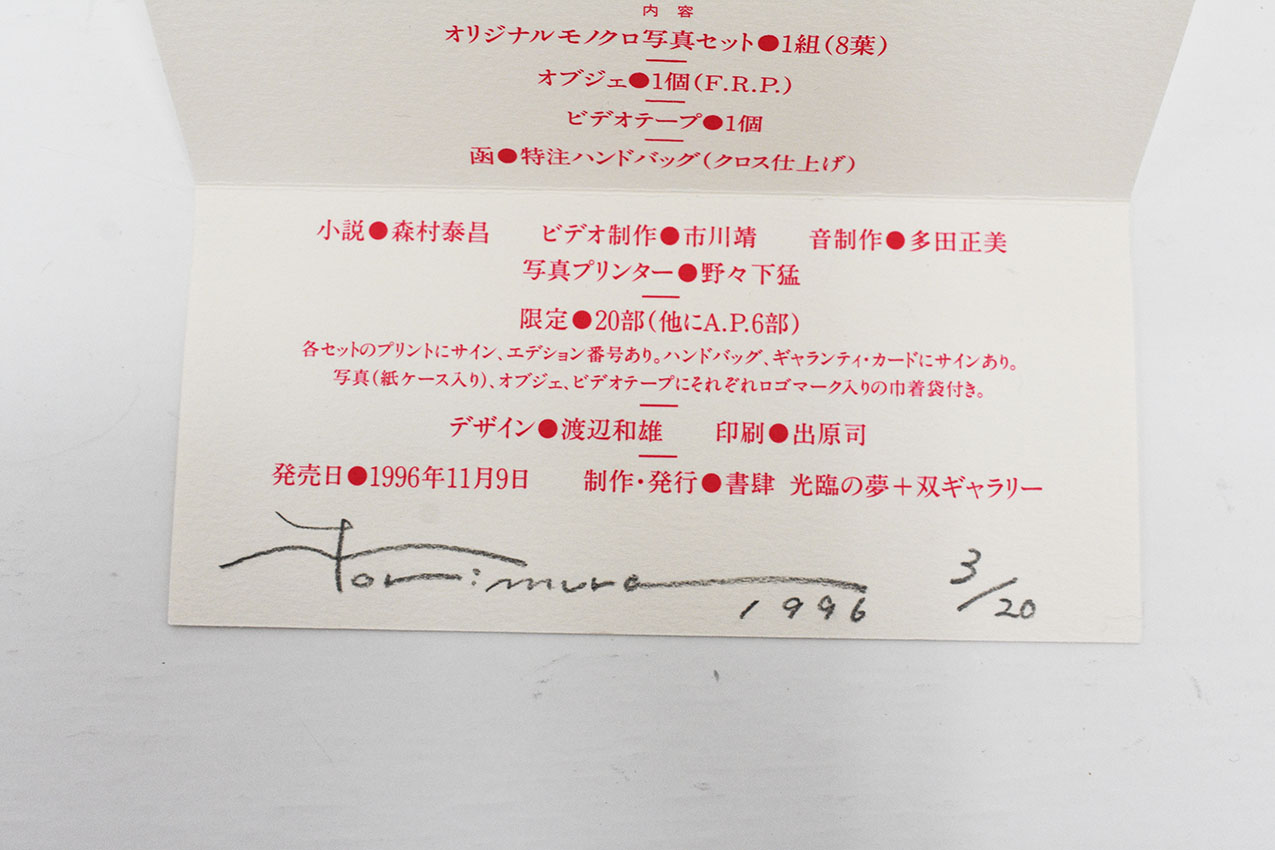 内容
オリジナルモノクロ写真セット●1組(8葉)
オブジェ●1個(F.R.P.)
ビデオテープ●1個
函●特注ハンドバッグ(クロス仕上げ)
小説●森村泰昌 ビデオ制作●市川靖 音制作●多田正美
写真プリンター●野々下猛
限定●20部(他にA.P.6部)
各セットのプリントにサイン、エデション番号あり。ハンドバッグ、ギャランティ・カードにサインあり。
写真(紙ケース入り)、オブジェ、ビデオテープにそれぞれロゴマーク入りの巾着袋付き。
デザイン●渡辺和雄 印刷●出原司
発売日●1996年11月9日 制作・発行●書肆 光臨の夢+双ギャラリー
Morimura
1996 3/20